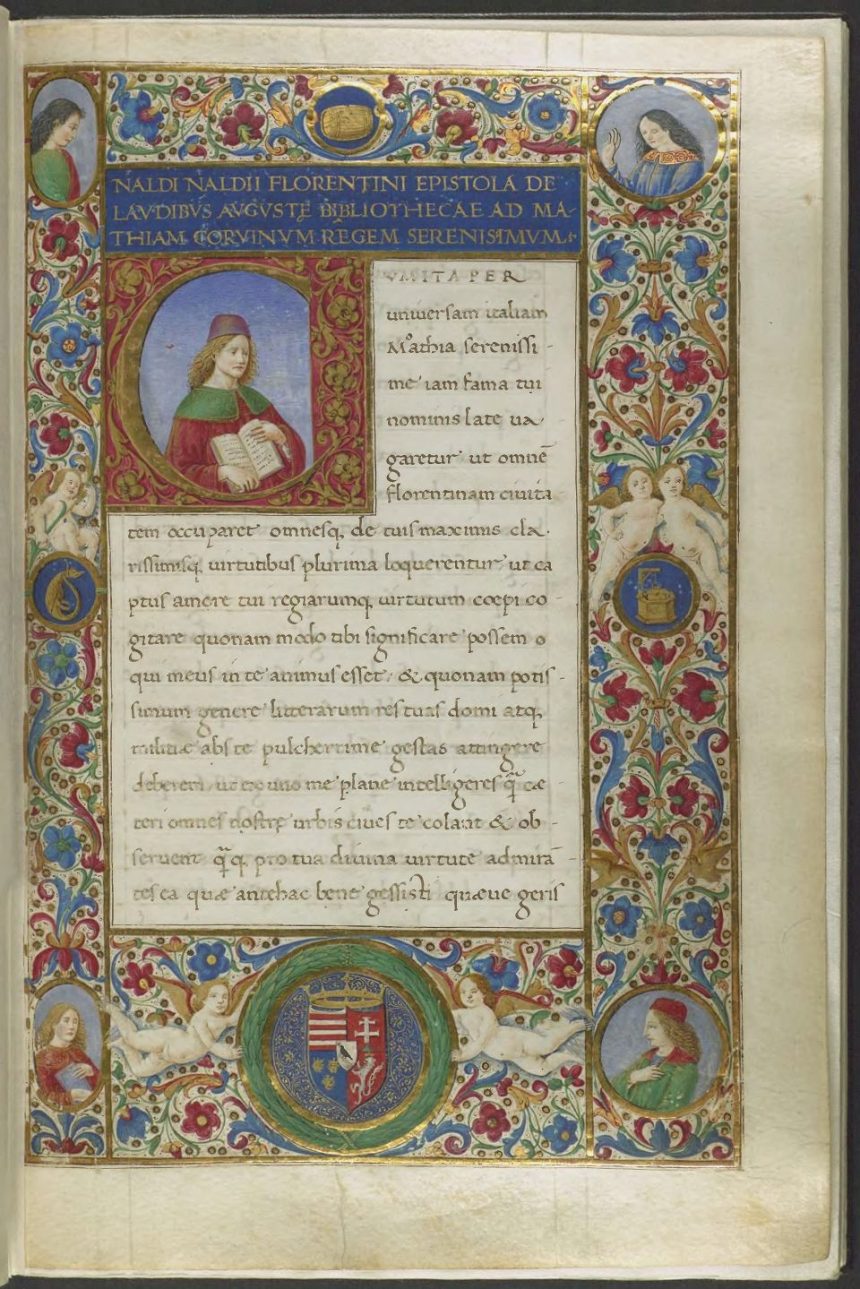 NALDI NALDII FLORENTINI EPISTOLA DE
LAVDIBVS AVGVSTĘ BIBLIOTHECAE AD MA-
THIAM CORVINVM REGEM SERENISIMVM.
VM ITA PER
universam italiam
Mathia serenissi-
me iam fama tui
nominis late va
garetur ut omnē
florentinam civita
tem occuparet omnesq, de tuis maximis cla.
rissimisq, virtutibus plurima loquerentur ut ca
ptus amore tui regiarumq, virtutum coepi co
gitare quonam modo tibi significare possem o
qui meus in te animus esset, & quonam potis-
simum genere litterarum res tuas domi atq,
militiæ abs te pulcherrime gestas attingere
deberem, ut ex uno me plane intelligeres q̃ cæ
teri omnes nostrę urbis cives te colant & ob-
servent q̃q, pro tua divina virtute admirā-
tes ea quæ antehac bene gessisti quæve geris